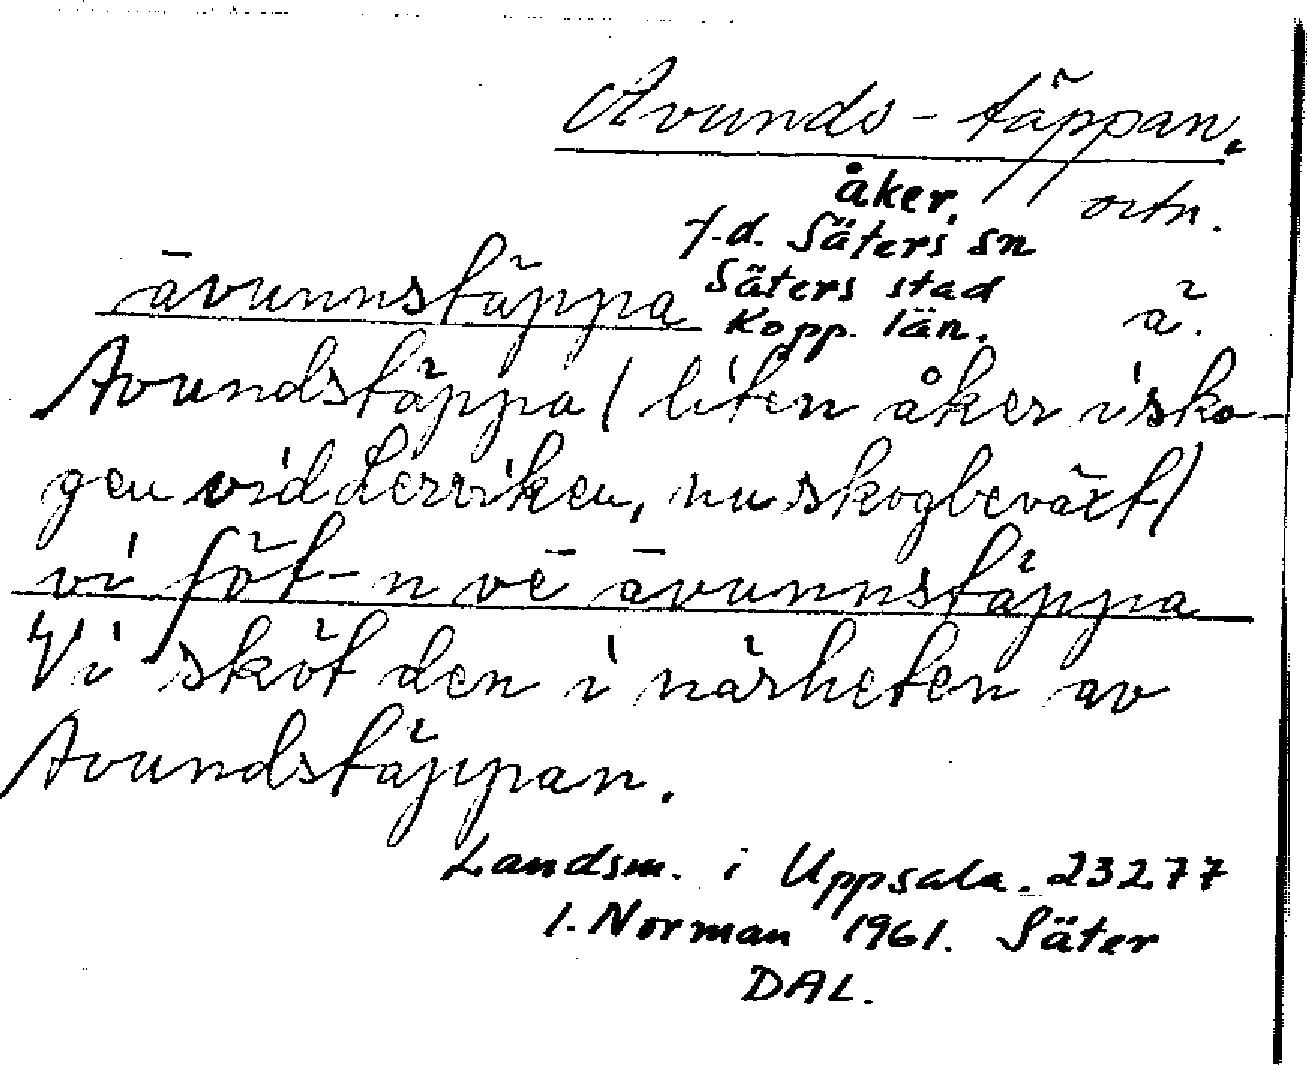 Avunds-täppan.
åker. ortn.
f.d. Säters sn
Säters stad
Kopp. län. ä.
āvunnstäppa
Avundstäppa / liten åker i sko-
gen vid Lerviken, nu skogbeväxt /
vi ʃöt-n vē āvunnstäppa
Vi sköt den i närheten av
Avundstäppan.
Landsm. i Uppsala. 23277
I. Norman 1961. Säter
DAL.